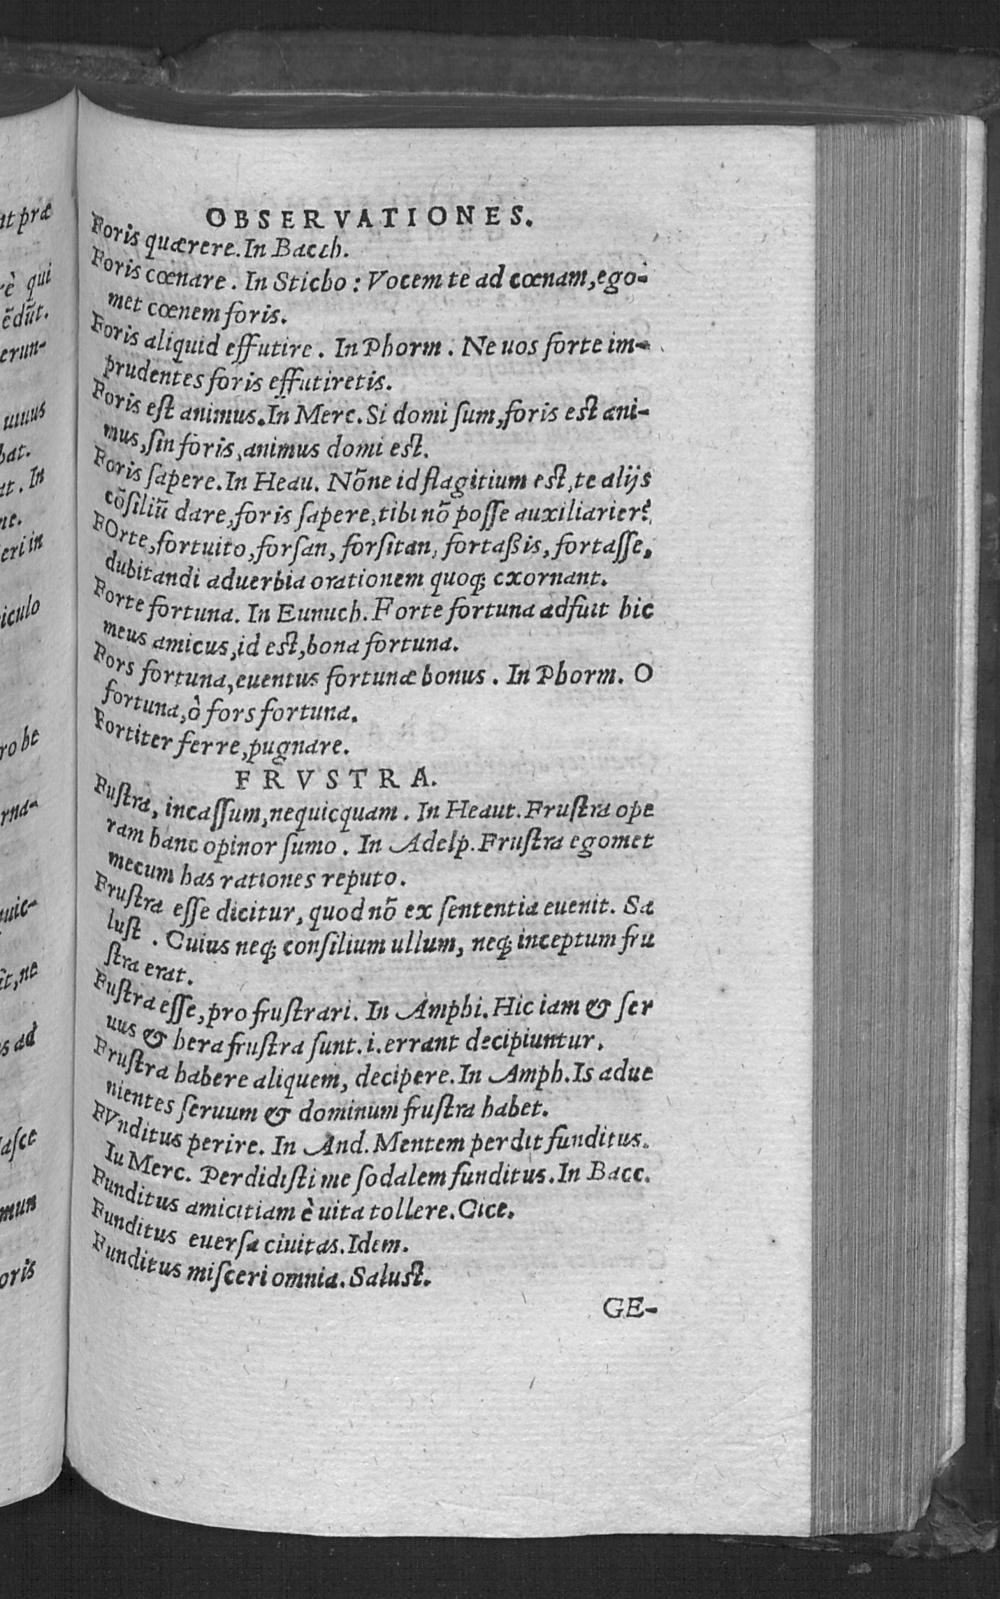 OBSERVATIONES.
Foris quærere. In Bacch.
Foris cœnare. In Sticho: Vocem te ad cœnam, ego-
met cœnem foris.
Foris aliquid effutire. In Phorm. Ne uos forte im-
prudentes foris effutiretis.
Foris est animus. In Merc. Si domi sum, foris est ani-
mus, sin foris, animus domi est.
Foris sapere. In Heau. Nõne id flagitium est, te alijs
cõsiliũ dare, foris sapere, tibi nõ posse auxiliarier?
FOrte, fortuito, forsan, forsitan, fortaßis, fortasse,
dubitandi aduerbia orationem quoq; exornant.
Forte fortuna. In Eunuch. Forte fortuna adfuit hic
meus amicus, id est, bona fortuna.
Fors fortuna, euentus fortunæ bonus. In Phorm. O
fortuna, ô fors fortuna.
Fortiter ferre, pugnare.
FRVSTRA.
Fustra, incassum, nequicquam. In Heaut. Frustra ope
ram hanc opinor sumo. In Adelp. Frustra egomet
mecum has rationes reputo.
Frustra esse dicitur, quod nõ ex sententia euenit. Sa
lust. Cuius neq; consilium ullum, neq; inceptum fru
stra erat.
Fustra esse, pro frustrari. In Amphi. Hic iam & ser
uus & hera frustra sunt. i. errant decipiuntur.
Frustra habere aliquem, decipere. In Amph. Is adue
nientes seruum & dominum frustra habet.
FVnditus perire. In And. Mentem perdit funditus.
Iu Merc. Perdidisti me sodalem funditus. In Bacc.
Funditus amicitiam è uita tollere. Cice.
Funditus euersa ciuitas. Idem.
Funditus misceri omnia. Salust.
GE-